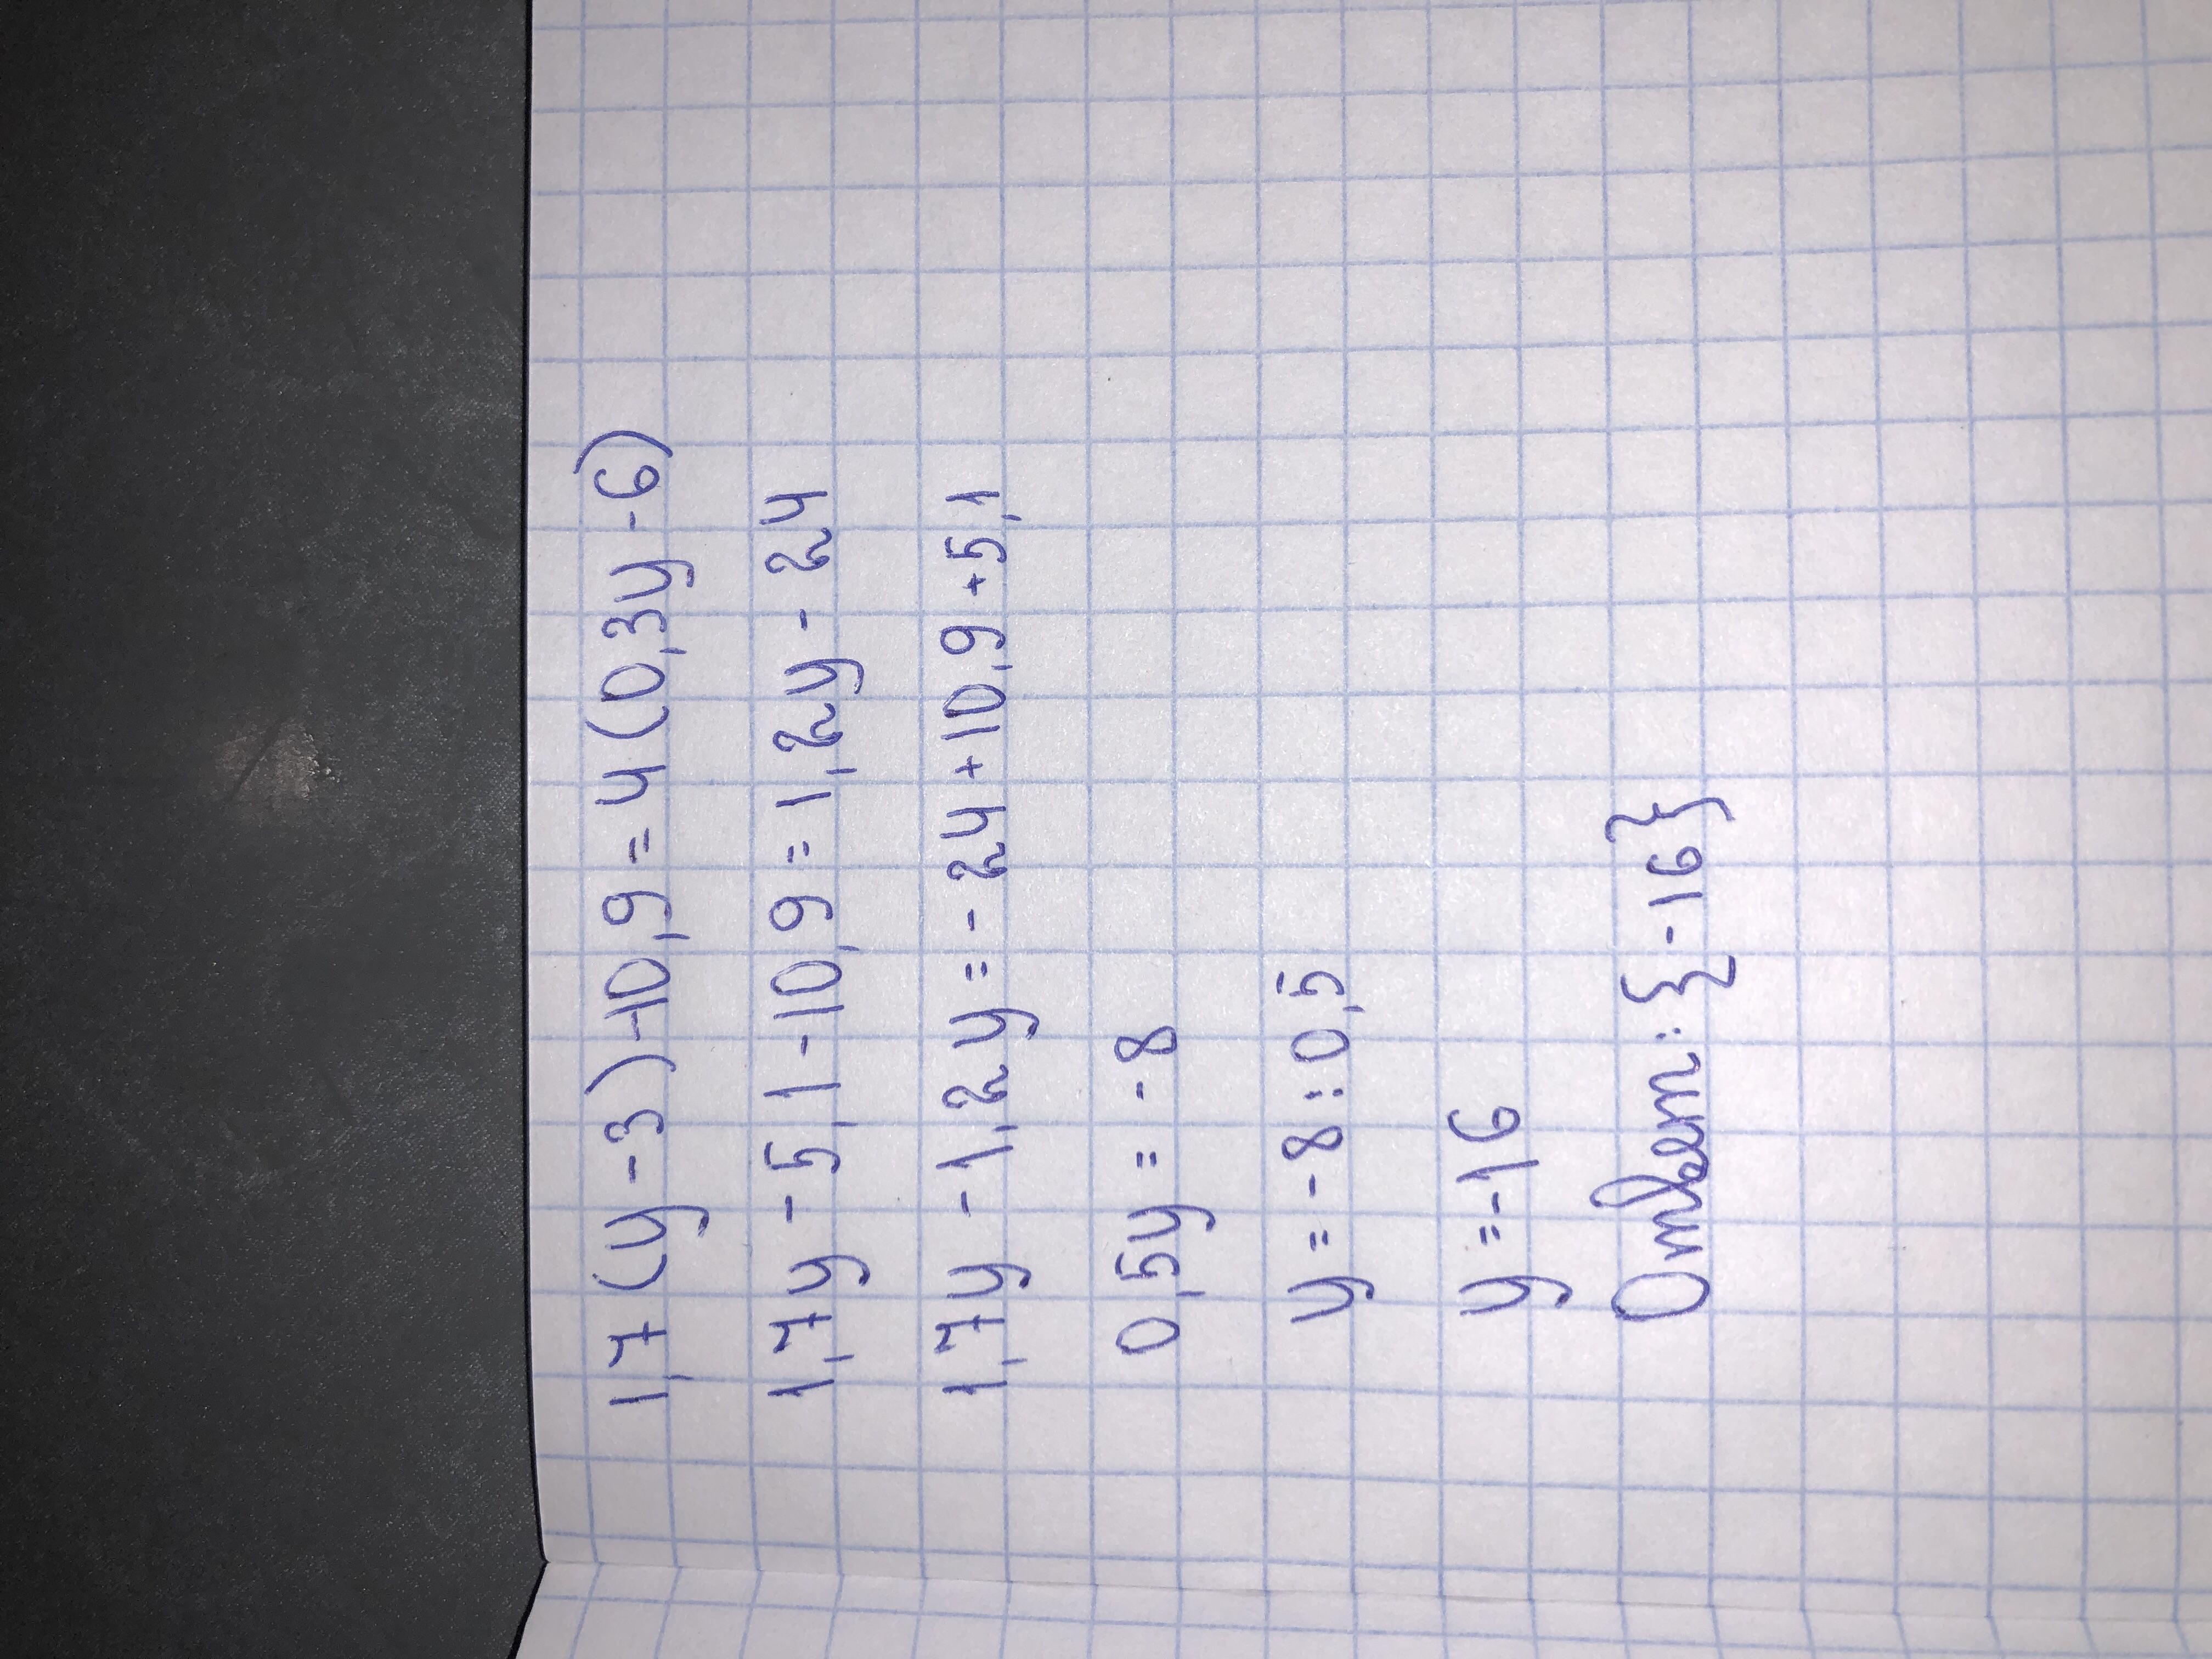 1,7(y-3)-10,9=4(0,3y-6)
1,7y-5,1-10,9=1,2y-24
1,7y-1,2y=-24+10,9+5,1
0,5y=-8
y=-8:0,5
y=-16
Ответ:{-16}